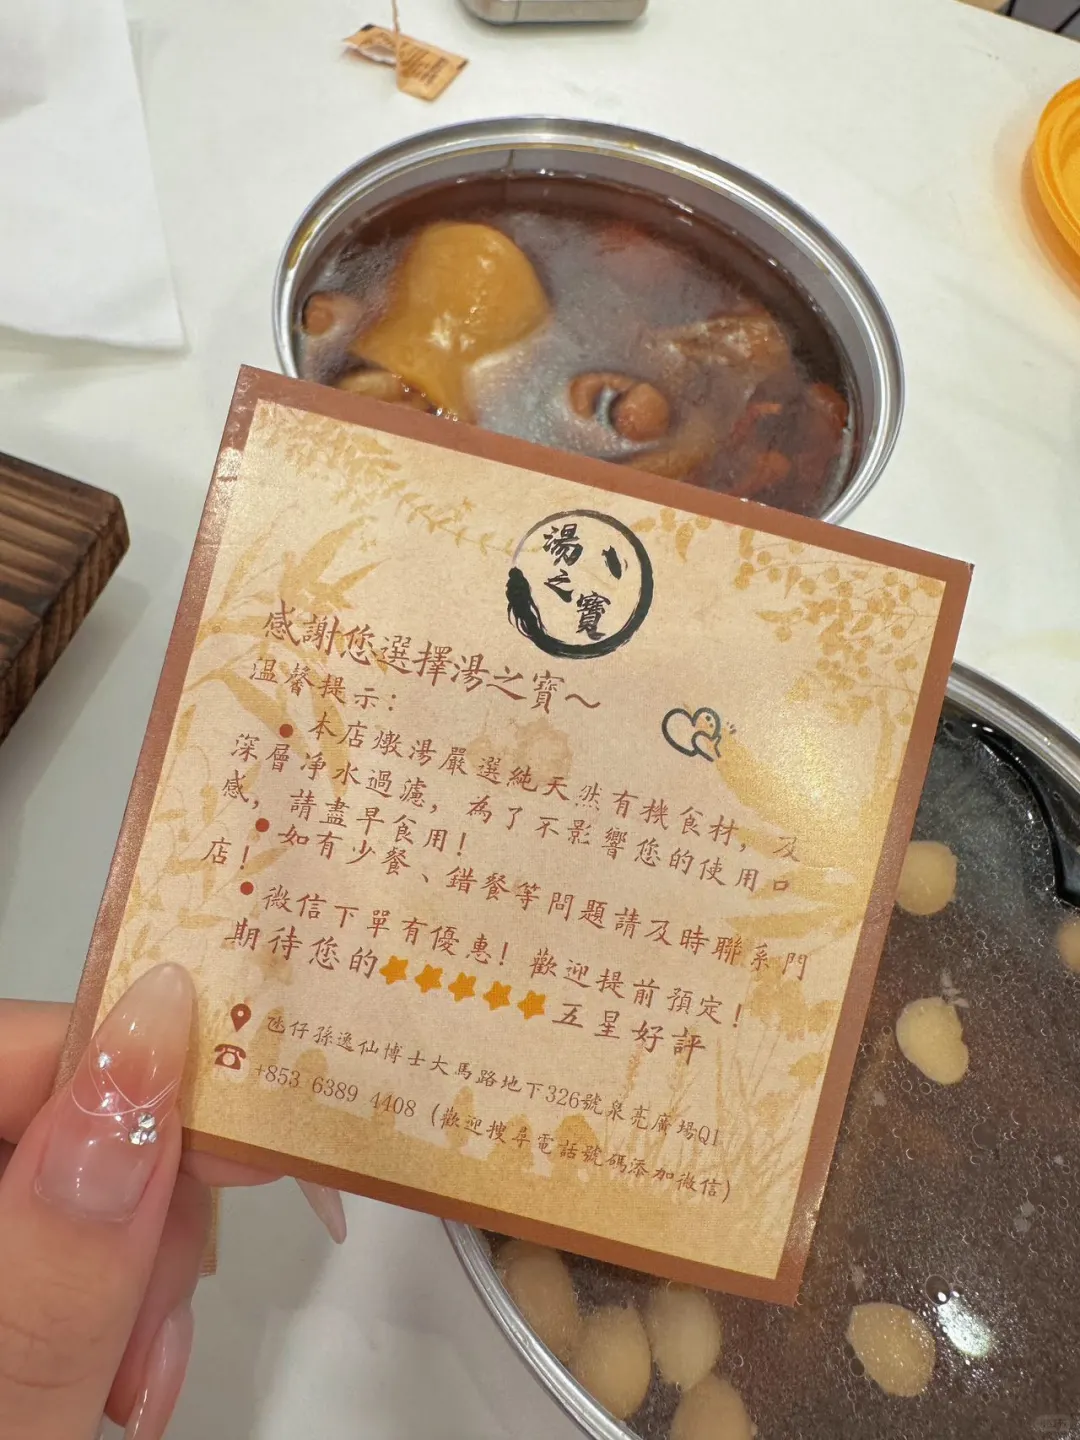 湯之寶
感謝您選擇湯之寶～
溫馨提示：
● 本店燉湯嚴選純天然有機食材，及
深層净水過濾，為了不影響您的使用口
感，請盡早食用！
● 如有少餐、錯餐等問題請及時聯系門
店！
● 微信下單有優惠！歡迎提前預定！
期待您的★★★★★五星好評
氹仔孫逸仙博士大馬路地下326號泉亮廣場Q1
+853 6389 4408（歡迎搜尋電話號碼添加微信）